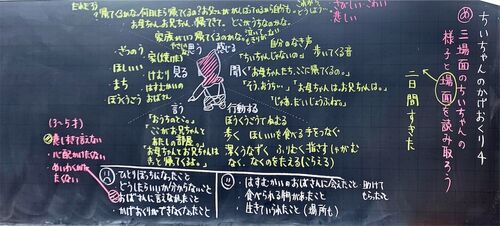 ちいちゃんのかげおくり 4
め 三場面のちいちゃんの
様子と場面を読み取ろう
二日間すぎた
さびしい こわい
悲しい
感じる
思う
家族がいつ帰ってくるのかな。
お母ちゃん、お兄ちゃん、帰ってきて。どこかうちなのかな。
自分のなき声
歩いてくる音
聞く
「ちいちゃんじゃないの。」
「お母ちゃんたち、ここに帰ってくるの。」
「そう、おうち…」「お母ちゃんは、お兄ちゃんは。」
「じゃあ、だいじょうぶね。」
見る
ざつのう
家(焼けた)
ほしいい
けむり
まち
はすむかいの
おばさん
ぼうくうごう
言う
「おうちのとこ。」
「ここがお兄ちゃんと
あたしの部屋。」
「お母ちゃんとお兄ちゃんは
きっと帰ってくるよ。」
行動する
ぼうくうごうでねむる
歩く ほしいいを食べる 手をつなぐ
深くうなずく ふりむく 指さす しゃがむ
なく、なくのをたえる(こらえる)
(3〜5才)
悲しすぎて言えない
心配かけたくない
めいわくかけ
たくない
・ひとりぼっちになったこと
・どうしたらいいか分からないこと
・おばさんに言えなかったこと
・かげおくりができなくなったこと
・はすむかいのおばさんに会えたこと 助けて
もらったこと
・食べられる物があったこと
・生きていられたこと (場所も)